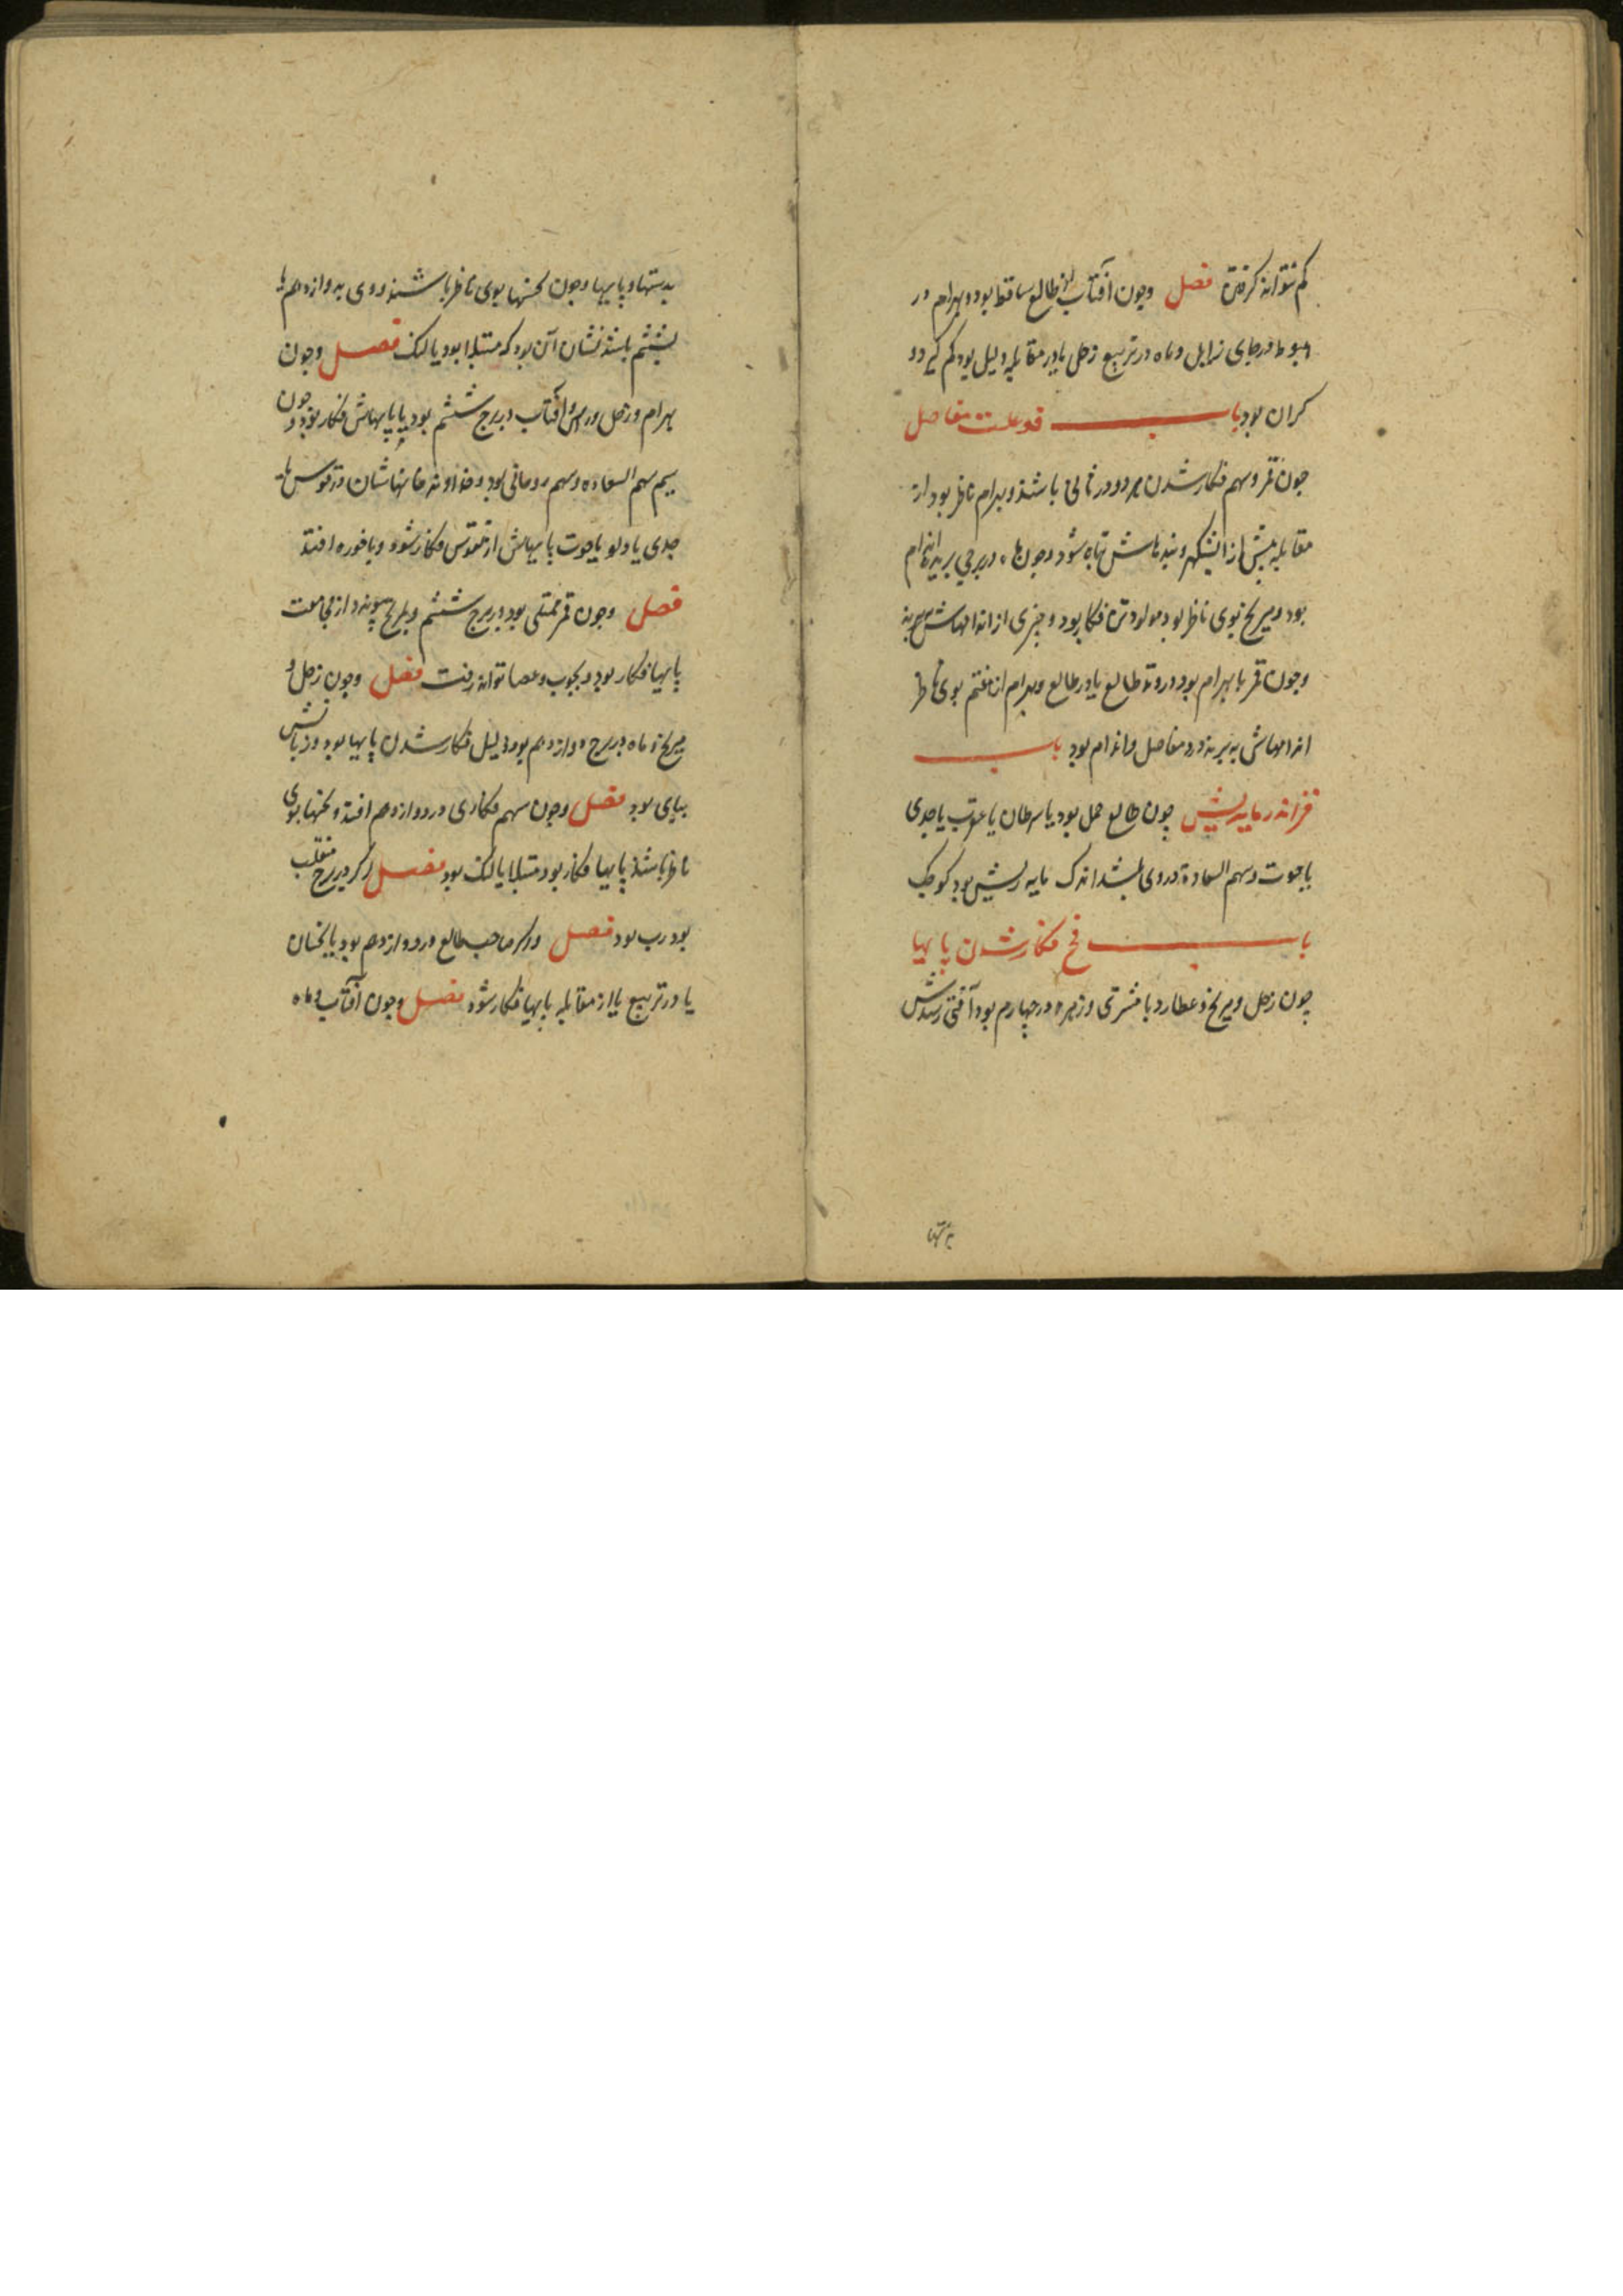 کم نتواند کردن فصل وچون آفتاب از طالع ساقط بود وبهرام در
هبوط درجای زایل وماه در تربیع زحل یا در مقابله دلیل بود کم کی دو
کران بود باب علت مفاصل
چون قمر وسهم فکار شدن هر دو در باشند وبهرام ناظر بود از
مقابله شود وچون ماه در برجی بریده اندام
بود ومریخ بوی ناظر بود مولود تن فکار بود وچیزی از اندامهاش
وچون قمر با بهرام بود در وتد طالع یا در طالع وبهرام از هفتم بوی ناظر
اندامهاش ببرند ودرد مفاصل واندام بود باب
چون طالع حمل بود یا سرطان یا عقرب یا جدی
یا حوت وسهم السعادة در وی باشد اندک مایه ریش بود کوچک
باب فکار شدن پایها
چون زحل ومریخ وعطارد با مشتری وزهره در چهارم بود آفتی رسدش
بدستها
بدستها وپایها وچون نحسها بوی ناظر باشند ووی بدوازدهم یا
بششم باشد نشان آن بود که مبتلا بود یا لنک فصل وچون
بهرام وزحل ورأس وآفتاب در برج ششم بود پایهاش فکار بود وچون
سهم السعاده وسهم روحانی بود وخداوند خانهاشان در قوس یا
جدی یا دلو یا حوت پایهاش از نقرس فکار شود ویا خوره افتد
فصل وچون قمر ممتلی بود در برج ششم وبمریخ پیوندد از مجامعت
پایها فکار بود وبچوب وعصا تواند رفت فصل وچون زحل و
مریخ وماه در برج دوازدهم بود دلیل فکار شدن پایها بود
بپای بود فصل وچون سهم فکاری در دوازدهم افتد ونحسها بوی
ناظر باشند پایها فکار بود مبتلا یا لنک بود فصل اکر در برج منقلب
بود بود فصل واکر صاحب طالع در دوازدهم بود با نحسان
یا در تربیع یا از مقابله پایها فکار شود فصل وچون آفتاب وماه